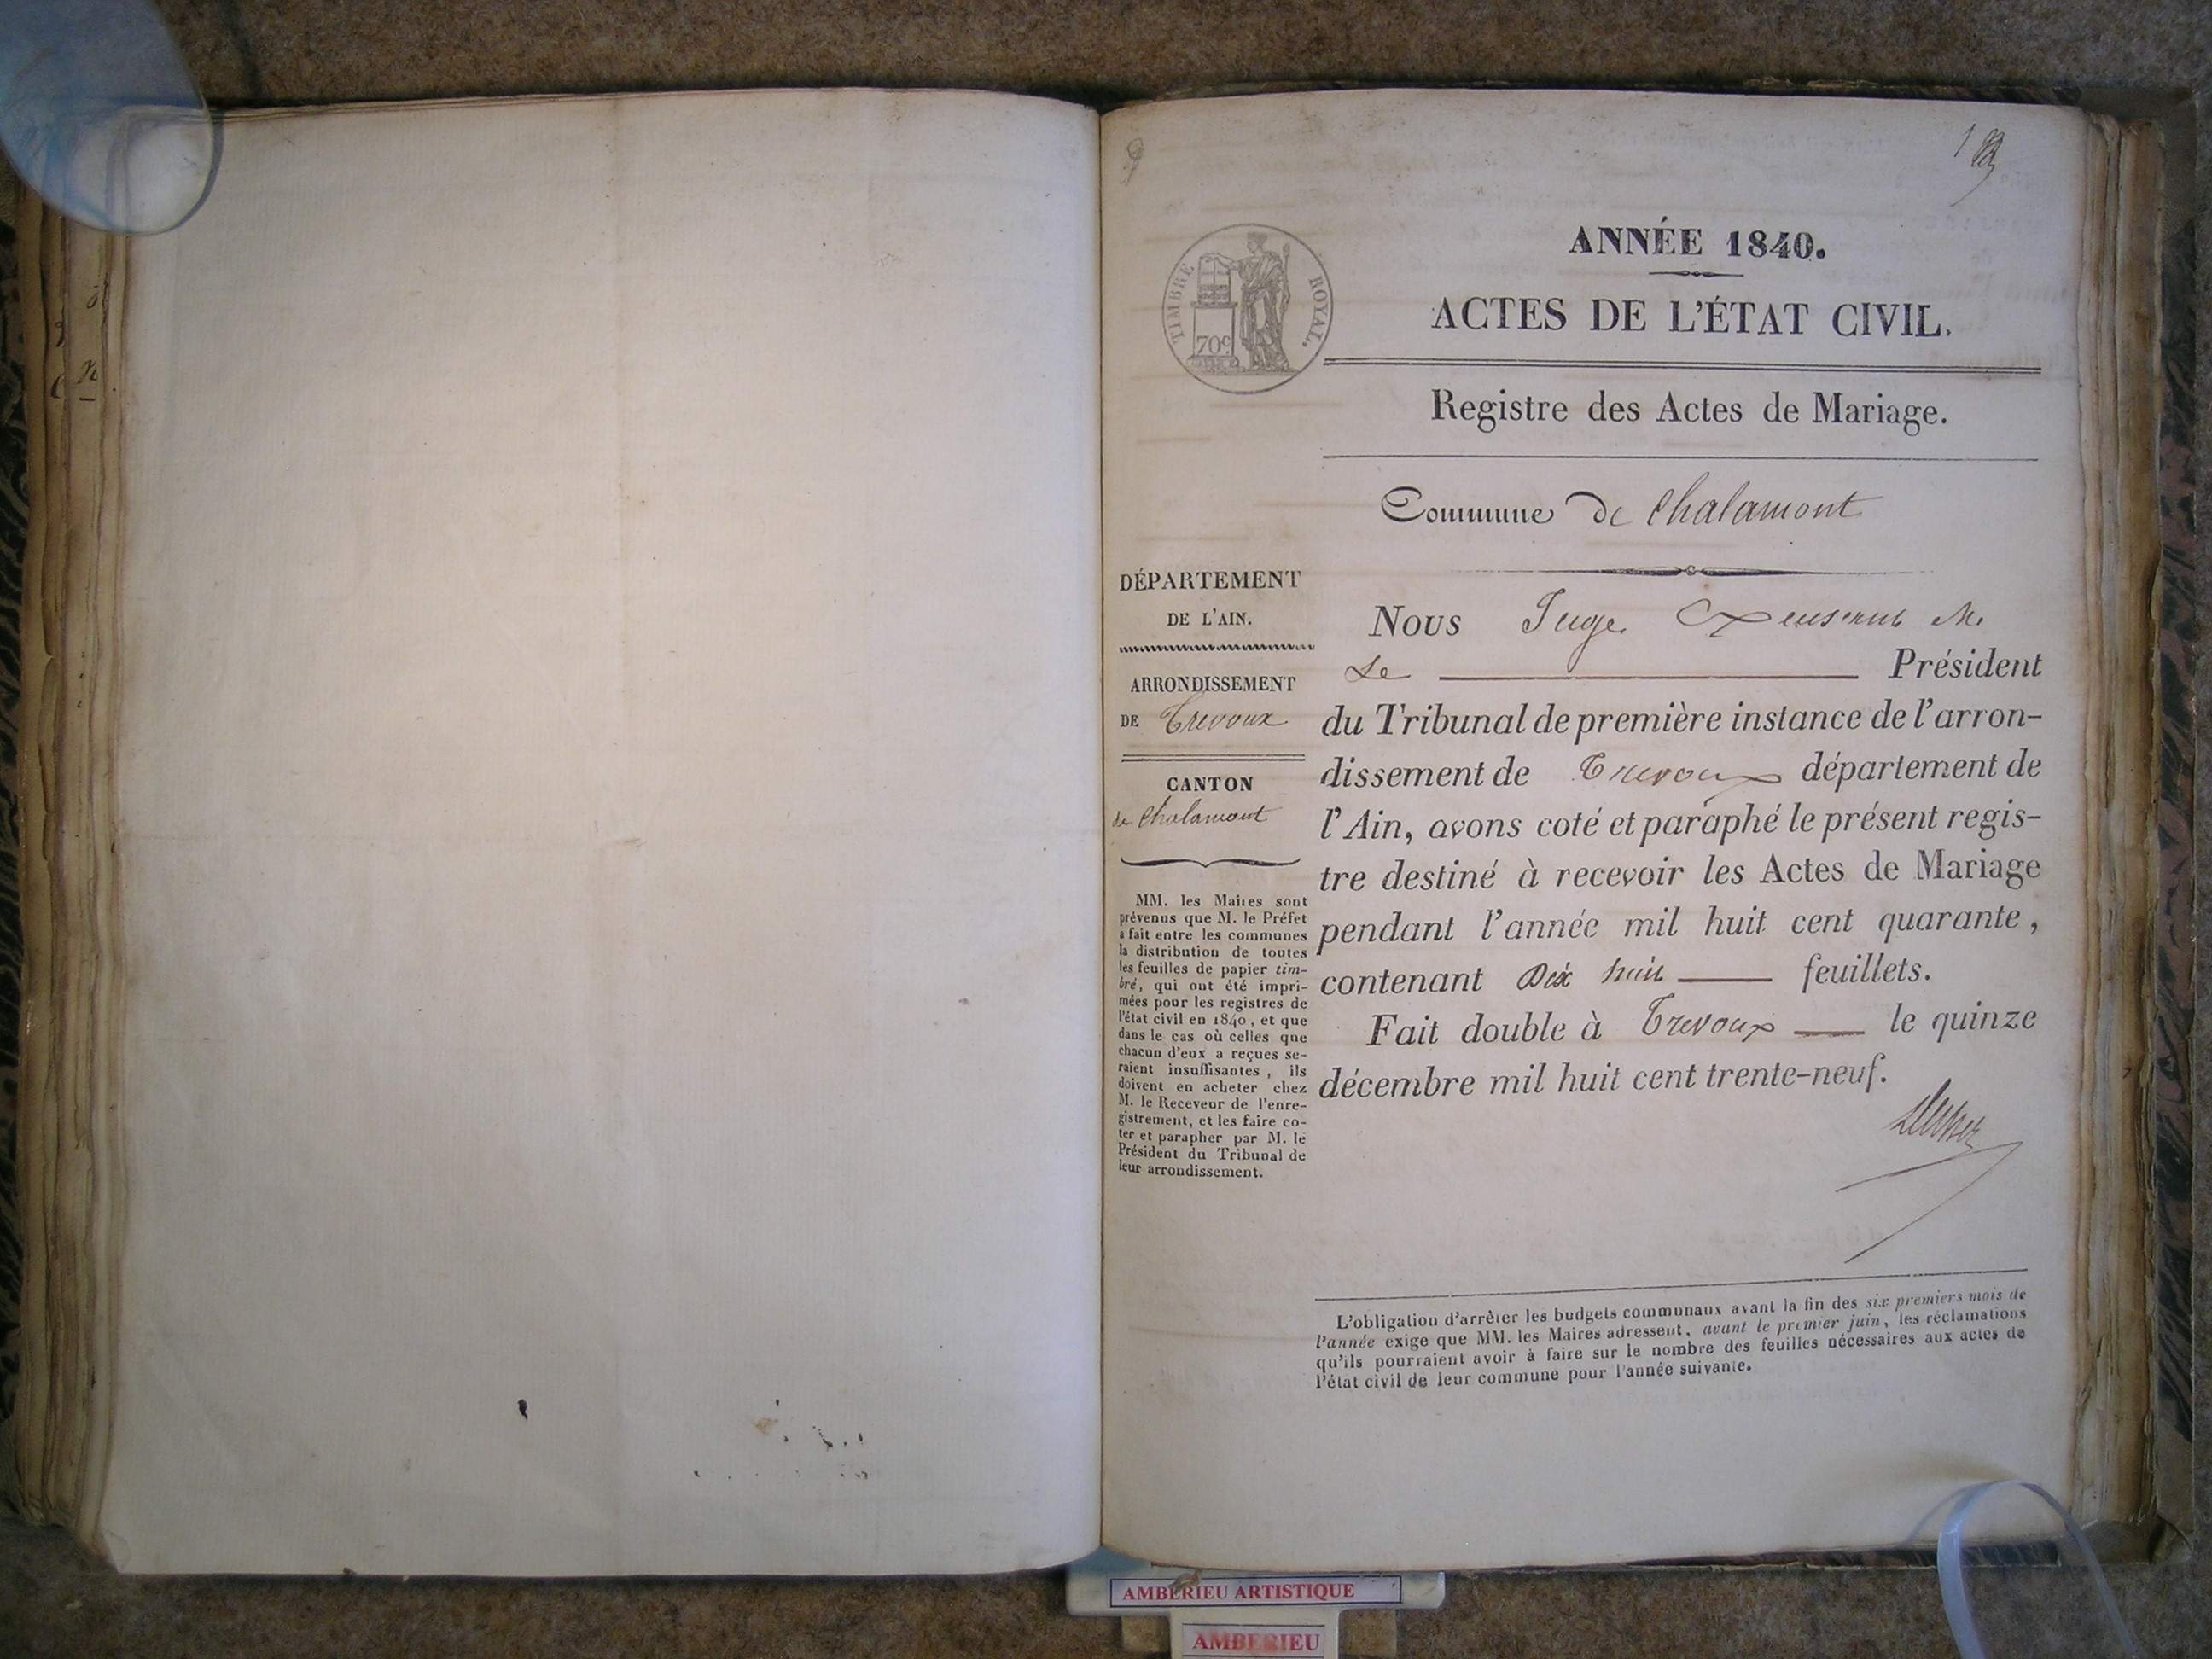 ANNÉE 1840.
TIMBRE ROYAL.
70c
ACTES DE L'ÉTAT CIVIL.
Registre des Actes de Mariage.
Commune de Chalamont
DÉPARTEMENT
DE L'AIN.
ARRONDISSEMENT
DE Trevoux
CANTON
de Chalamont
MM. les Maires sont
prévenus que M. le Préfet
a fait entre les communes
la distribution de toutes
les feuilles de papier tim-
bré, qui ont été impri-
mées pour les registres de
l'état civil en 1840, et que
dans le cas où celles que
chacun d'eux a reçues se-
raient insuffisantes, ils
doivent en acheter chez
M. le Receveur de l'enre-
gistrement, et les faire co-
ter et parapher par M. le
Président du Tribunal de
leur arrondissement.
Nous Juge M.
Le Président
du Tribunal de première instance de l'arron-
dissement de Trevoux département de
l'Ain, avons coté et paraphé le présent regis-
tre destiné à recevoir les Actes de Mariage
pendant l'année mil huit cent quarante,
contenant Dix huit feuillets.
Fait double à Trevoux le quinze
décembre mil huit cent trente-neuf.
L'obligation d'arrêter les budgets communaux avant la fin des six premiers mois de
l'année exige que MM. les Maires adressent, avant le premier juin, les réclamations
qu'ils pourraient avoir à faire sur le nombre des feuilles nécessaires aux actes de
l'état civil de leur commune pour l'année suivante.
AMBERIEU ARTISTIQUE
AMBERIEU